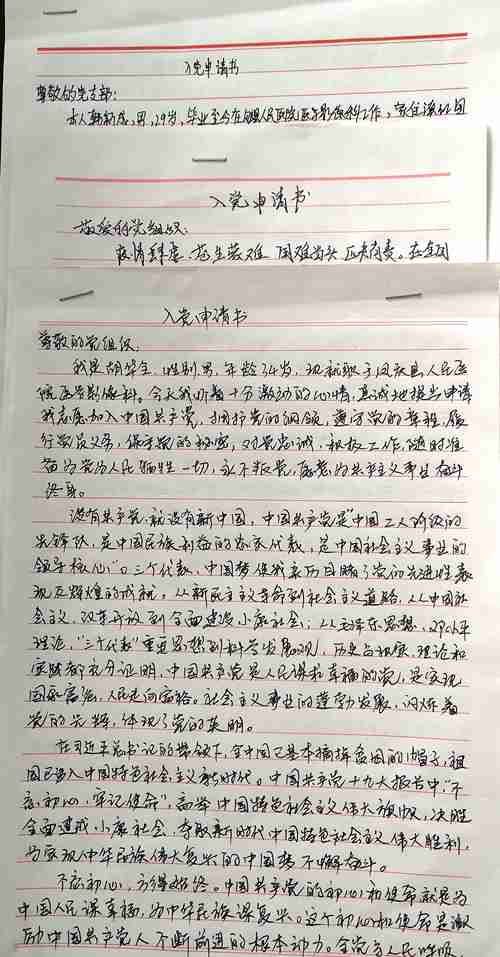 入党申请书
尊敬的党支部:
本人韩新成,男,29岁,毕业至今在县人民医院医学影像科工作,家住
入党申请书
敬爱的党组织:
疫情肆虐,苍生蒙难,国难当头,匹夫有责。在全国
入党申请书
尊敬的党组织:
我是胡华全,性别男,年龄34岁,现就职于凤庆县人民医
院医学影像科。今天我怀着十分激动的心情,真诚地提出申请
我志愿加入中国共产党,拥护党的纲领,遵守党的章程,履
行党员义务,保守党的秘密,对党忠诚,积极工作,随时准
备为党为人民牺牲一切,永不叛党,愿意为共产主义事业奋斗
终身。
没有共产党就没有新中国,中国共产党是中国工人阶级的
先锋队,是中国民族利益的忠实代表,是中国社会主义事业的
领导核心。三个代表,中国梦使我亲历目睹了党的先进性表
现及辉煌的成就。从新民主主义革命到社会主义道路,从中国社
会主义,改革开放到全面建设小康社会;从毛泽东思想,邓小平
理论,“三个代表”重要思想到科学发展观,历史与现实,理论和
实践都充分证明,中国共产党是人民谋求幸福的党,是实现
国家富强,人民走向富裕。社会主义事业的蓬勃发展,闪烁着
党的光辉,体现了党的英明。
在习近平总书记的带领下,全中国已基本摘掉贫困的帽子,祖
国已步入中国特色社会主义新时代。中国共产党十九大报告中,“不
忘初心,牢记使命”,高举中国特色社会主义伟大旗帜,决胜
全面建成小康社会,夺取新时代中国特色社会主义伟大胜利,
为实现中华民族伟大复兴的中国梦不懈奋斗。
不忘初心,方得始终。中国共产党的初心和使命就是为
中国人民谋幸福,为中华民族谋复兴。这个初心和使命是激
励中国共产党人不断前进的根本动力。全党与人民呼吸